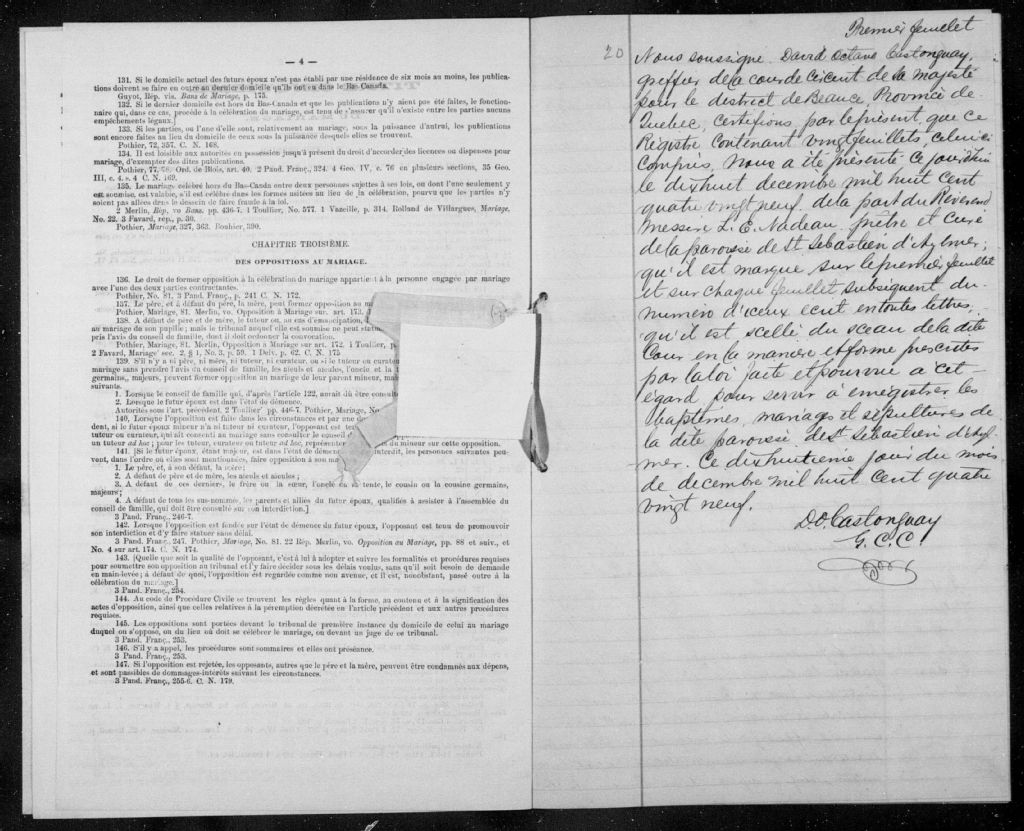 — 4 —
131. Si le domicile actuel des futurs époux n'est pas établi par une résidence de six mois au moins, les publica-
tions doivent se faire en outre au dernier domicile qu'ils ont eu dans le Bas-Canada.
Guyot, Rép. vis. Bans de Mariage, p. 175.
132. Si le dernier domicile est hors du Bas-Canada et que les publications n'y aient pas été faites, le fonction-
naire qui, dans ce cas, procède à la célébration du mariage, est tenu de s'assurer qu'il n'existe entre les parties aucuns
empêchements légaux.]
133. Si les parties, ou l'une d'elle sont, relativement au mariage, sous la puissance d'autrui, les publications
sont encore faites au lieu du domicile de ceux sous la puissance desquels elles se trouvent.
Pothier, 72, 357. C. N. 168.
134. Il est loisible aux autorités en possession jusqu'à présent du droit d'accorder des licences ou dispenses pour
mariage, d'exempter des dites publications.
Pothier, 77, 78. Ord. de Blois, art. 40. 2 Pand. Franç., 324. 4 Geo. IV, c. 76 en plusieurs sections, 35 Geo.
III, c. 4. s. 4 C. N. 169.
135. Le mariage célébré hors du Bas-Canada entre deux personnes sujettes à ses lois, ou dont l'une seulement y
est soumise, est valable, s'il est célébré dans les formes usitées au lieu de la célébration, pourvu que les parties n'y
soient pas allées dans le dessein de faire fraude à la loi.
2 Merlin, Rép. vo Bans. pp. 436-7. 1 Toullier, No. 577. 1 Vazeille, p. 314. Rolland de Villargues, Mariage.
No. 22. 3 Favard, rép., p. 30.
Pothier, Mariage, 327, 363. Bouhier, 390.
CHAPITRE TROISIÈME.
DES OPPOSITIONS AU MARIAGE.
136. Le droit de former opposition à la célébration du mariage appartient à la personne engagée par mariage
avec l'une des deux parties contractantes.
Pothier, No. 81. 3 Pand. Franç., p. 241 C. N. 172.
137. Le père, et à défaut du père, la mère, peut former opposition au m
Pothier, Mariage, 81. Merlin, vo. Opposition à Mariage sur art. 173.
138. A défaut de père et de mère, le tuteur ou, au cas d'émancipation,
au mariage de son pupille; mais le tribunal auquel elle est soumise ne peut statu
pris l'avis du conseil de famille, dont il doit ordonner la convocation.
Pothier, Mariage, 81. Merlin, Opposition à Mariage sur art. 172. 1 Toullier, p
2 Favard, Mariage sec. 2, § 1, No. 3, p. 59. 1 Delv. p. 62. C. N. 175
139. S'il n'y a ni père, ni mère, ni tuteur, ni curateur, ou si le tuteur ou curate
mariage sans prendre l'avis du conseil de famille, les aïeuls et aïeules, l'oncle et la
germains, majeurs, peuvent former opposition au mariage de leur parent mineur, ma
suivants.
1. Lorsque le conseil de famille qui, d'après l'article 122, aurait dû être consult
2. Lorsque le futur époux est dans l'état de démence.
Autorités sous l'art. précédent, 2 Toullier pp. 446-7. Pothier, Mariage, No
140. Lorsque l'opposition est faite dans les circonstances et par une
dent, si le futur époux mineur n'a ni tuteur ni curateur, l'opposant est ten
tuteur ou curateur, qui ait consenti au mariage sans consulter le conseil
un tuteur ad hoc; pour les tuteur, curateur ou tuteur ad hoc, représenter mineur sur cette opposition.
141. [Si le futur époux, étant majeur, est dans l'état de démen interdit, les personnes suivantes peu-
vent, dans l'ordre où elles sont mentionnées, faire opposition à son ma
1. Le père, et, à son défaut, la mère;
2. A défaut de père et de mère, les aïeuls et aïeules;
3. A défaut de ces derniers, le frère ou la sœur, l'oncle ou la tente, le cousin ou la cousine germains,
majeurs;
4. A défaut de tous les sus-nommés, les parents et alliés du futur époux, qualifiés à assister à l'assemblée du
conseil de famille, qui doit être consulté sur son interdiction.]
3 Pand. Franç., 246-7.
142. Lorsque l'opposition est fondée sur l'état de démence du futur époux, l'opposant est tenu de promouvoir
son interdiction et d'y faire statuer sans délai.
3 Pand. Franç., 247. Pothier, Mariage, No. 81. 22 Rép. Merlin, vo. Opposition au Mariage, pp. 88 et suiv., et
No. 4 sur art. 174. C. N. 174.
143. [Quelle que soit la qualité de l'opposant, c'est à lui à adopter et suivre les formalités et procédures requises
pour soumettre son opposition au tribunal et l'y faire décider sous les délais voulus, sans qu'il soit besoin de demande
en main-levée; à défaut de quoi, l'opposition est regardée comme non avenue, et il est, nonobstant, passé outre à la
célébration du mariage.]
3 Pand. Franç., 254.
144. Au code de Procédure Civile se trouvent les règles quant à la forme, au contenu et à la signification des
actes d'opposition, ainsi que celles relatives à la péremption décrétée en l'article précédent et aux autres procédures
requises.
145. Les oppositions sont portées devant le tribunal de première instance du domicile de celui au mariage
duquel on s'oppose, ou du lieu où doit se célébrer le mariage, ou devant un juge de ce tribunal.
3 Pand. Franç., 253.
146. S'il y a appel, les procédures sont sommaires et elles ont préséance.
3 Pand. Franç., 253.
147. Si l'opposition est rejetée, les opposants, autres que le père et la mère, peuvent être condamnés aux dépens,
et sont passibles de dommages-intérêts suivant les circonstances.
3 Pand. Franç., 255-6. C. N. 179.
Premier feuillet
20
Nous soussigné, David Octave Castonguay,
greffier de la cour de Circuit de Sa Majesté
pour le district de Beauce, Province de
Québec, certifions, par le présent, que ce
Registre contenant vingt feuillets, celui ci
compris, nous a été présenté ce jourd'hui
le dixhuit decembre mil huit cent
quatre vingt neuf, de la part du Révérend
Messire L. E. Nadeau, prêtre et curé
de la paroisse de St Sébastien d'Aylmer;
qu'il est marqué sur le premier feuillet
et sur chaque feuillet subséquent du
numéro d'iceux écrit en toutes lettres,
qu'il est scellé du sceau de la dite
Cour en la manière et forme prescrites
par la loi faite et pourvue à cet
égard pour servir à enregistrer les
baptêmes, mariages et sépultures de
la dite paroisse de St Sébastien d'Ayl-
mer. Ce dixhuitième jour du mois
de decembre mil huit cent quatre
vingt neuf.
D. O. Castonguay
G. C. C.